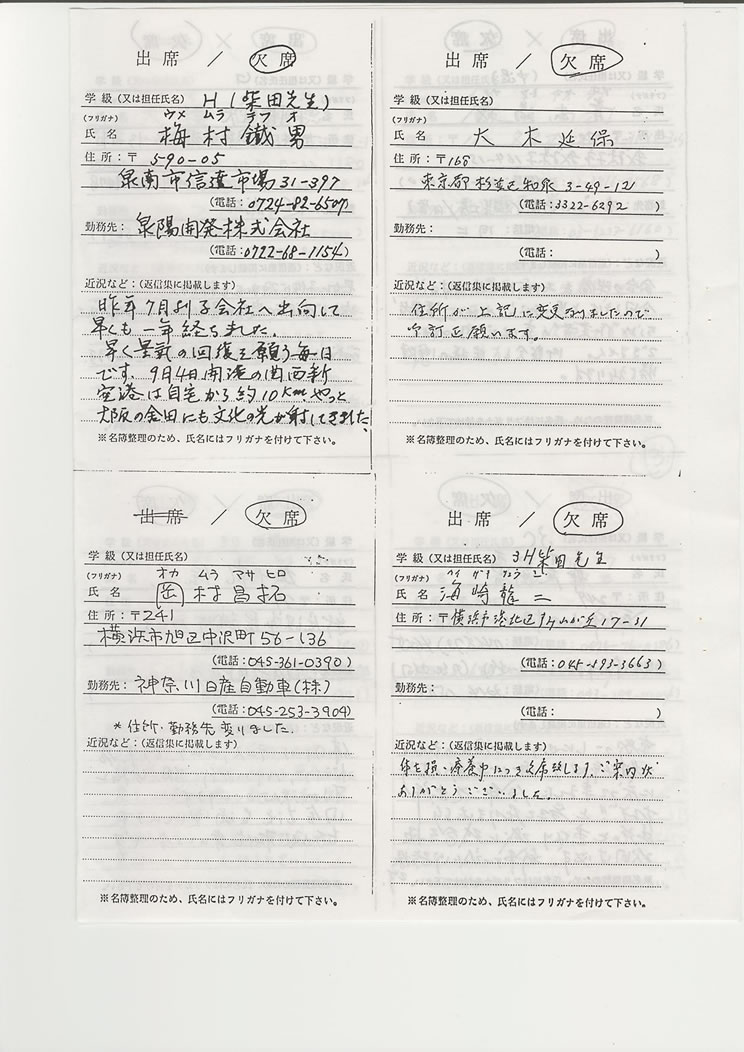 出席 / 欠席
学級（又は担任氏名） H（柴田先生）
（フリガナ） ウメ ムラ テツ オ
氏名 梅村鐵男
住所：〒 590-05
泉南市信達市場31-397
（電話：0724-82-6507）
勤務先： 泉陽開発株式会社
（電話：0722-68-1154）
近況など：（返信集に掲載します）
昨年7月より子会社へ出向して
早くも一年経ちました.
早く景気の回復を願う毎日
です. 9月4日開港の関西新
空港は自宅から約10Km やっと
大阪の田舎にも文化の光が射してきました、
※名簿整理のため、氏名にはフリガナを付けて下さい。
出席 / 欠席
学級（又は担任氏名）
（フリガナ）
氏名 大木延保
住所：〒168
東京都杉並区和泉 3-49-12
（電話：3322-6292）
勤務先：
（電話： ）
近況など：（返信集に掲載します）
住所が上記に変更なりましたので
訂正願います。
※名簿整理のため、氏名にはフリガナを付けて下さい。
出席 / 欠席
学級（又は担任氏名）
（フリガナ） オカ ムラ マサ ヒロ
氏名 岡村昌拓
住所：〒241
横浜市旭区中沢町56-136
（電話：045-361-0390）
勤務先：神奈川日産自動車（株）
（電話：045-253-3904）
*住所・勤務先変りました.
近況など：（返信集に掲載します）
※名簿整理のため、氏名にはフリガナを付けて下さい。
出席 / 欠席
学級（又は担任氏名） 3H 柴田先生
（フリガナ）
氏名 海崎龍二
住所：〒横浜市港北区 17-31
（電話：045-593-3663）
勤務先：
（電話： ）
近況など：（返信集に掲載します）
体を損い療養中につき欠席致します、ご案内状
ありがとうございました。
※名簿整理のため、氏名にはフリガナを付けて下さい。